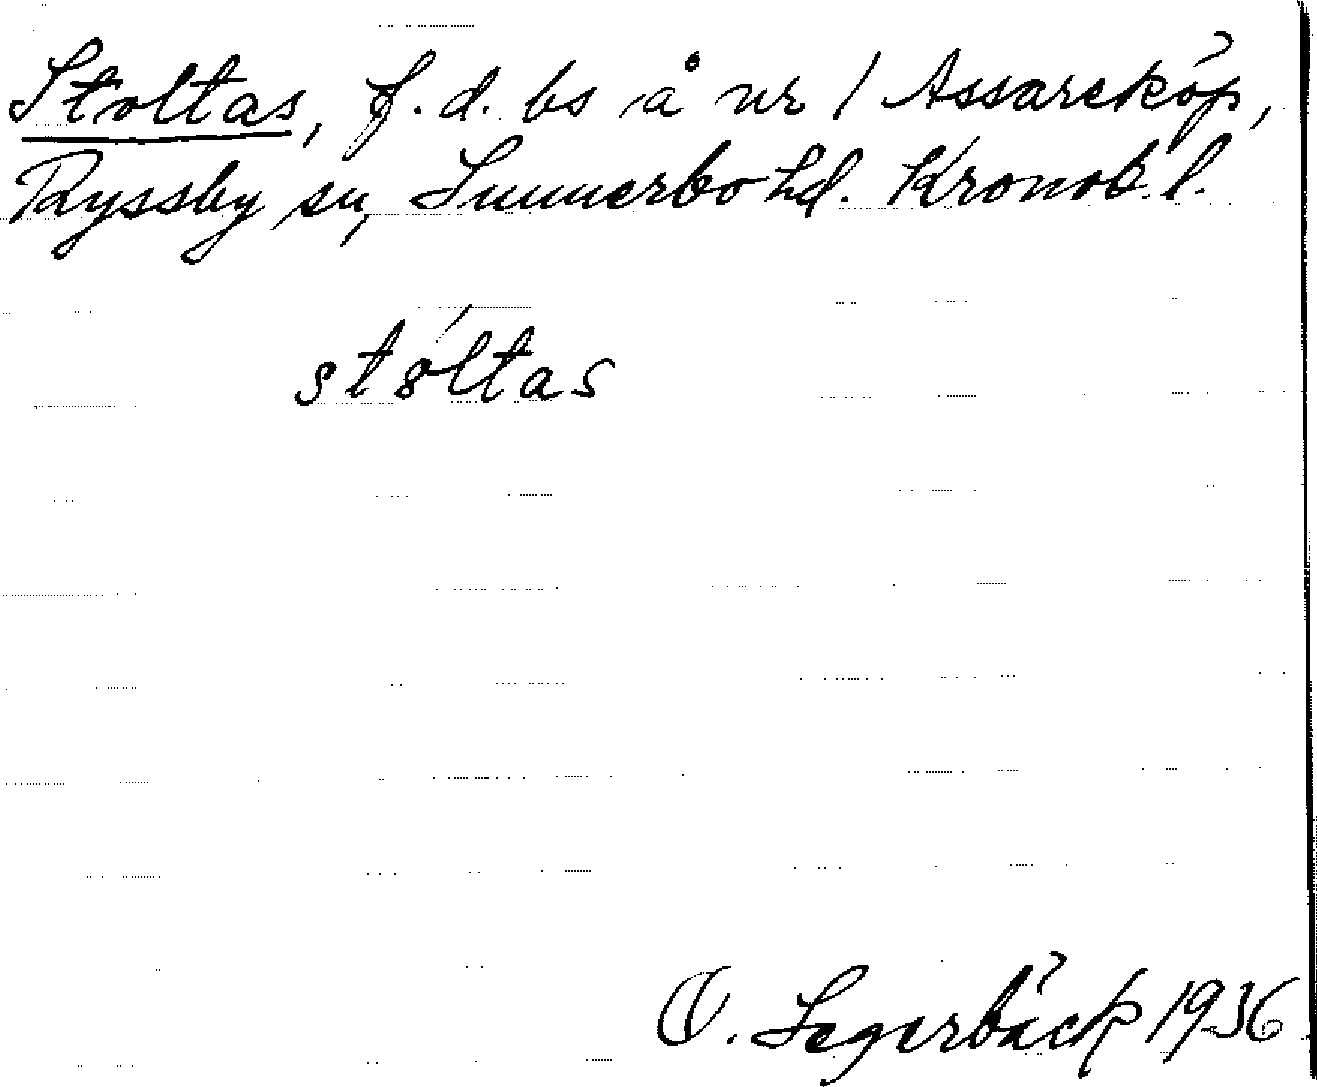 Stoltas, f.d. bs å nr 1 Assareköp,
Ryssby sn, Sunnerbo hd. Kronob. l.
stóltas
O. Segerbäck 1936